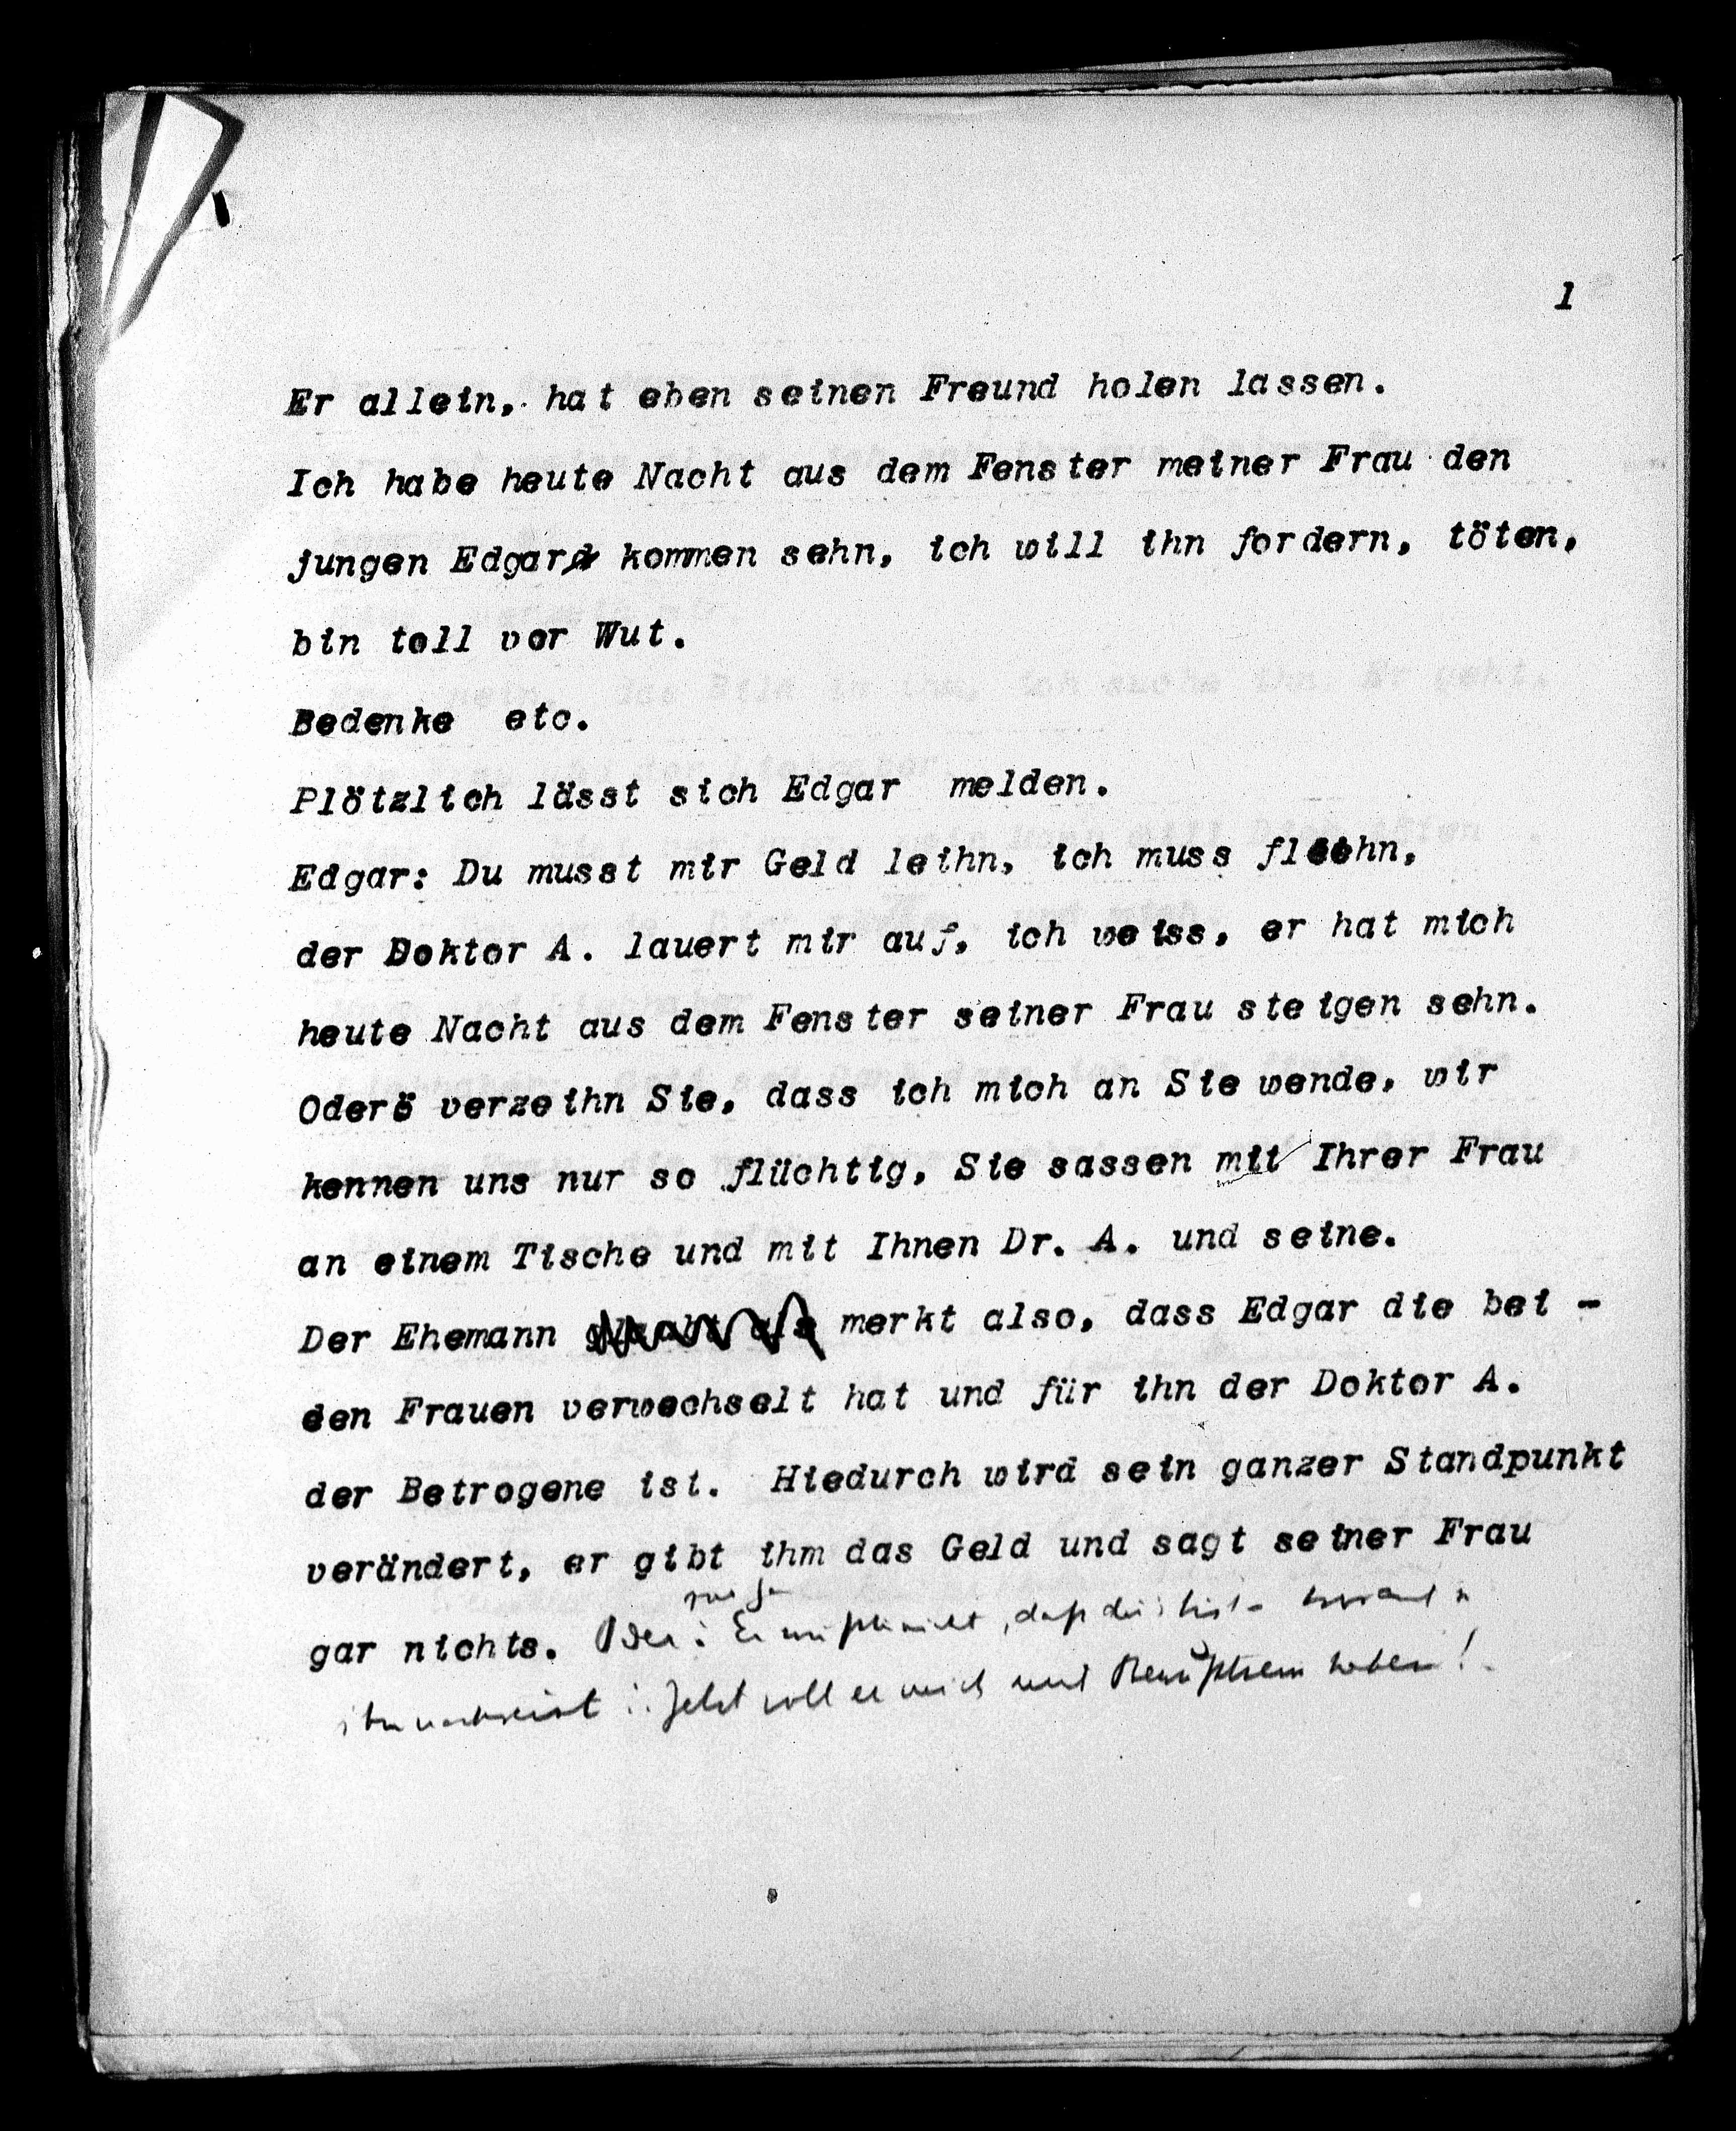 1
Er allein, hat eben seinen Freund holen lassen.
Ich habe heute Nacht aus dem Fenster meiner Frau den
jungen Edgar kommen sehn, ich will ihn fordern, töten,
bin toll vor Wut.
Bedenke etc.
Plötzlich lässt sich Edgar melden.
Edgar: Du musst mir Geld leihn, ich muss fliehn,
der Doktor A. lauert mir auf, ich weiss, er hat mich
heute Nacht aus dem Fenster seiner Frau steigen sehn.
Oder verzeihn Sie, dass ich mich an Sie wende, wir
kennen uns nur so flüchtig, Sie sassen mit Ihrer Frau
an einem Tische und mit Ihnen Dr. A. und seine.
Der Ehemann merkt also, dass Edgar die bei -
den Frauen verwechselt hat und für ihn der Doktor A.
der Betrogene ist. Hiedurch wird sein ganzer Standpunkt
verändert, er gibt ihm das Geld und sagt seiner Frau
gar nichts. Oder: Er, daß
: Jetzt soll er mich und Bewußtsein haben!